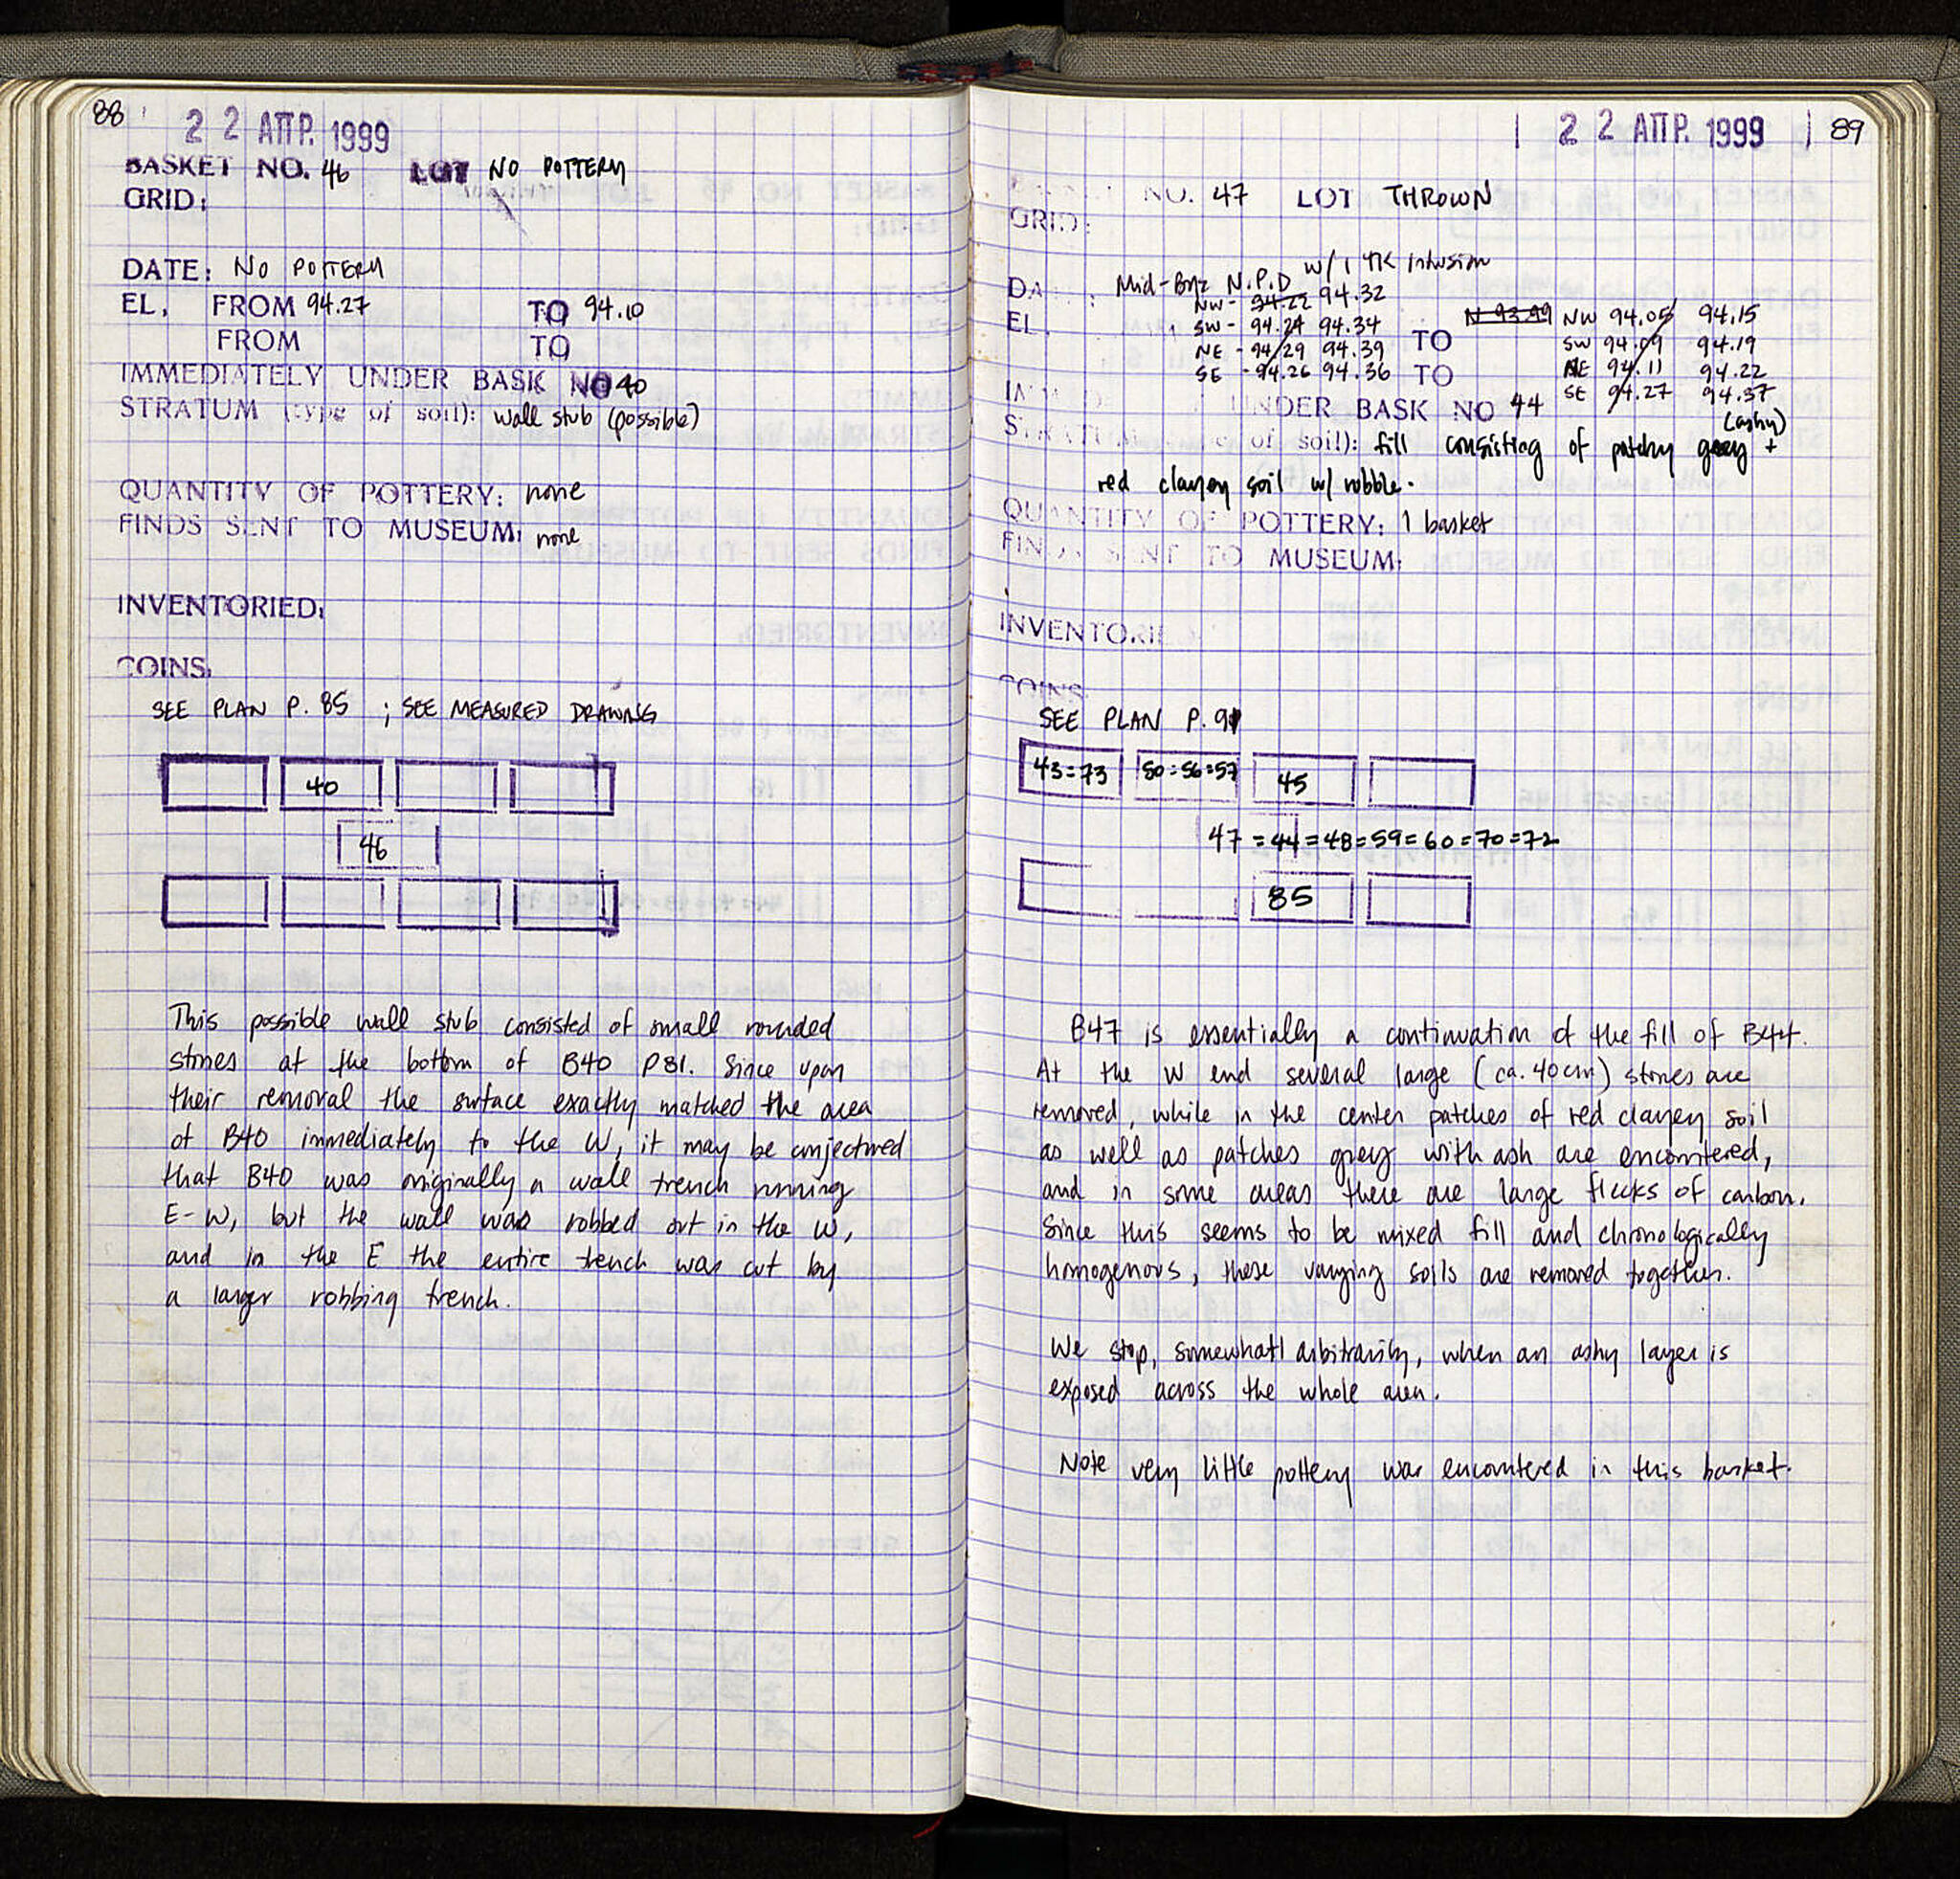 88
22 ΑΠΡ. 1999
BASKET NO. 46 LOT NO POTTERY
GRID:
DATE: NO POTTERY
EL. FROM 94.27 TO 94.10
FROM TO
IMMEDIATELY UNDER BASK NO 40
STRATUM (type of soil): wall stub (possible)
QUANTITY OF POTTERY: none
FINDS SENT TO MUSEUM: none
INVENTORIED:
COINS:
SEE PLAN P. 85 ; SEE MEASURED DRAWING
40
46
This possible wall stub consisted of small rounded
stones at the bottom of B40 P81. Since upon
their removal the surface exactly matched the area
of B40 immediately to the W, it may be conjectured
that B40 was originally a wall trench running
E-W, but the wall was robbed out in the W,
and in the E the entire trench was cut by
a larger robbing trench.
22 ΑΠΡ. 1999 89
NO. 47 LOT THROWN
GRID:
DA : Mid-Byz N.P.D w/ 1 TK Intusion
EL. NW - 94.22 94.32 TO N 93.99 NW 94.05 94.15
SW - 94.24 94.34 SW 94.09 94.19
NE - 94.29 94.39 NE 94.11 94.22
SE - 94.26 94.36 TO SE 94.27 94.37
UNDER BASK NO 44
STRATUM (type of soil): fill consisting of patchy grey (ashy) +
red clayey soil w/ rubble.
QUANTITY OF POTTERY: 1 basket
FINDS SENT TO MUSEUM:
INVENTORIE
COINS
SEE PLAN P. 91
43=73 50=56=57 45
47 =44=48=59=60=70=72
85
B47 is essentially a continuation of the fill of B44.
At the W end several large (ca. 40cm) stones are
removed, while in the center patches of red clayey soil
as well as patches grey with ash are encountered,
and in some areas there are large flecks of carbon.
Since this seems to be mixed fill and chronologically
homogenous, these varying soils are removed together.
We stop, somewhat arbitrarily, when an ashy layer is
exposed across the whole area.
Note very little pottery was encountered in this basket.